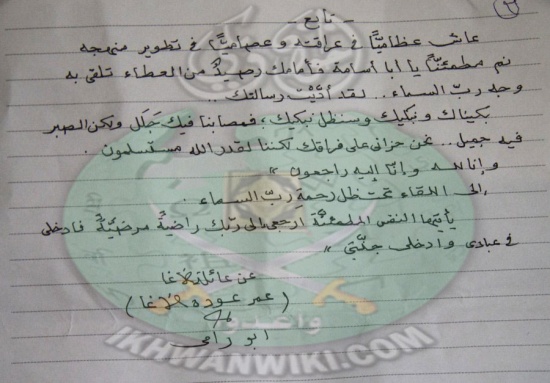 ٢
- تابع -
عاش عظاميًّا في عراقته وعصاميًّا في تطوير منهجه
نم مطمئنًّا يا أبا أسامة فأمامك رصيدٌ من العطاء تلقى به
وجه ربّ السماء .. لقد أدّيْت رسالتك ..
بكيناك ونبكيك وسنظل نبكيك، فمصابنا فيك جَلَل ولكن الصبر
فيه جميل... نحن حزانى على فراقك لكننا لقدر الله مستسلمون .
وإنا لله وإنّا إليه راجعون "
إلى اللقاء تحت ظل رحمةِ ربّ السماء .
يأيتها النفس المطمئنَّة ارجعي إلى ربّك راضيةً مرضيَّةً فادخلي
في عبادي وادخلي جنّتي "
عن عائلة الأغا
( عمر عوده الأغا )
ابو رامي
وأعدوا
IKHWANWIKI.COM